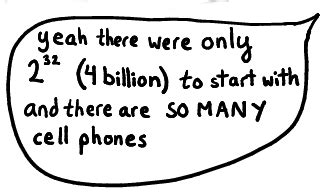 yeah there were only
2³² (4 billion) to start with
and there are SO MANY
cell phones